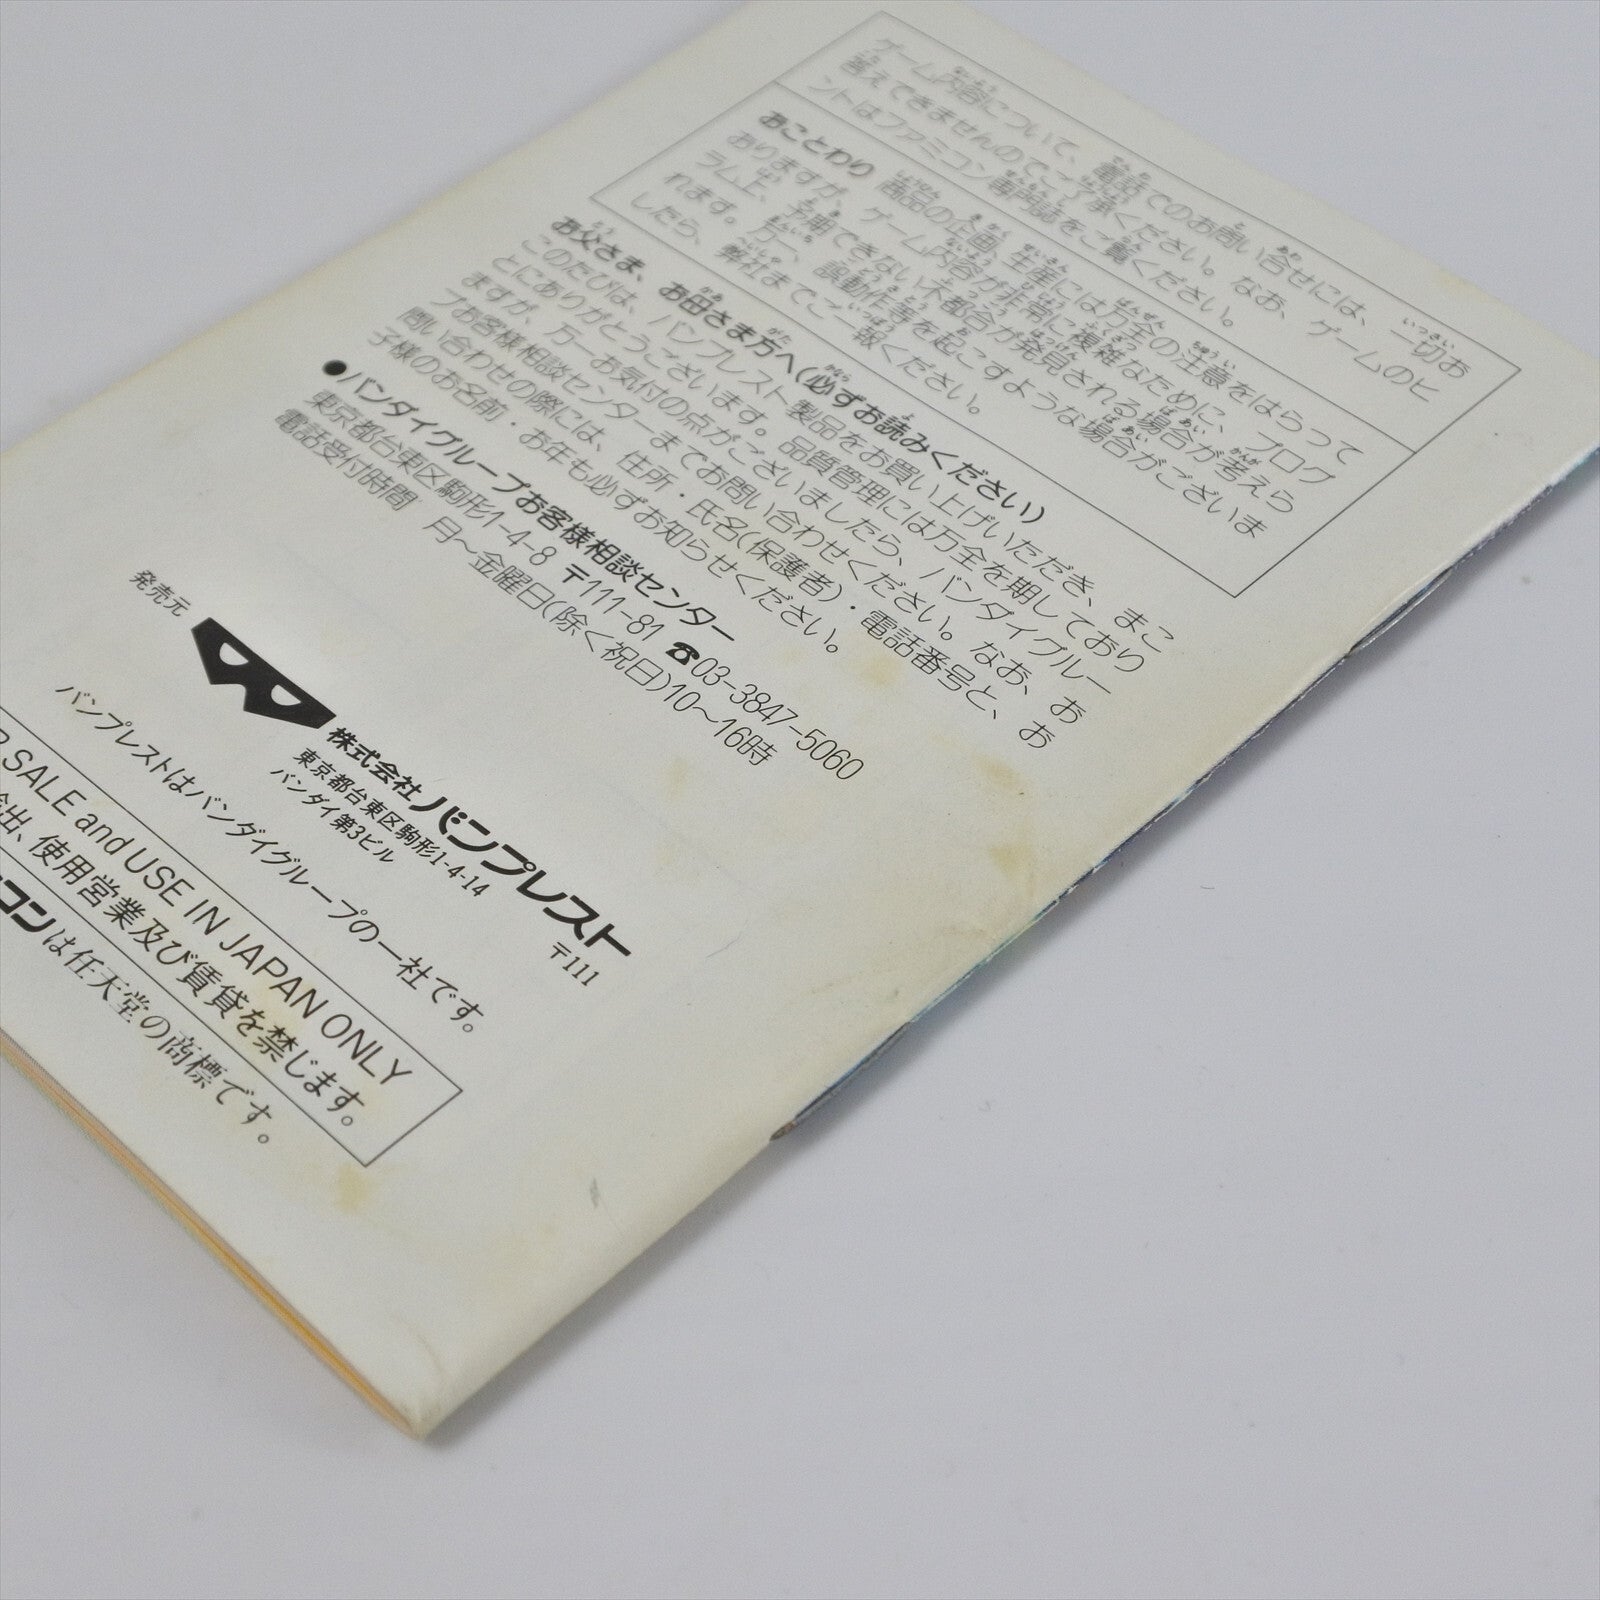 ゲーム内容について、電話でのお問い合せには、一切お
答えできませんのでご了承ください。なお、ゲームのヒ
ントはファミコン専門誌をご覧ください。
おことわり 商品の企画、生産には万全の注意をはらって
おりますが、ゲーム内容が非常に複雑なために、プログ
ラム上、予期できない不都合が発見される場合が考えら
れます。万一、誤動作等を起こすような場合がございま
したら、弊社までご一報ください。
お父さま、お母さま方へ(必ずお読みください)
このたびは、バンプレスト製品をお買い上げいただき、まこ
とにありがとうございます。品質管理には万全を期しており
ますが、万一お気付の点がございましたら、バンダイグルー
プお客様相談センターまでお問い合わせください。なお、お
問い合わせの際には、住所・氏名(保護者)・電話番号と、お
子様のお名前・お年も必ずお知らせください。
●バンダイグループお客様相談センター
東京都台東区駒形1-4-8 〒111-81 ☎03-3847-5060
電話受付時間 月〜金曜日(除く祝日)10〜16時
発売元
株式会社バンプレスト
東京都台東区駒形1-4-14 〒111
バンダイ第3ビル
バンプレストはバンダイグループの一社です。
SALE and USE IN JAPAN ONLY
出、使用営業及び賃貸を禁じます。
コンは任天堂の商標です。